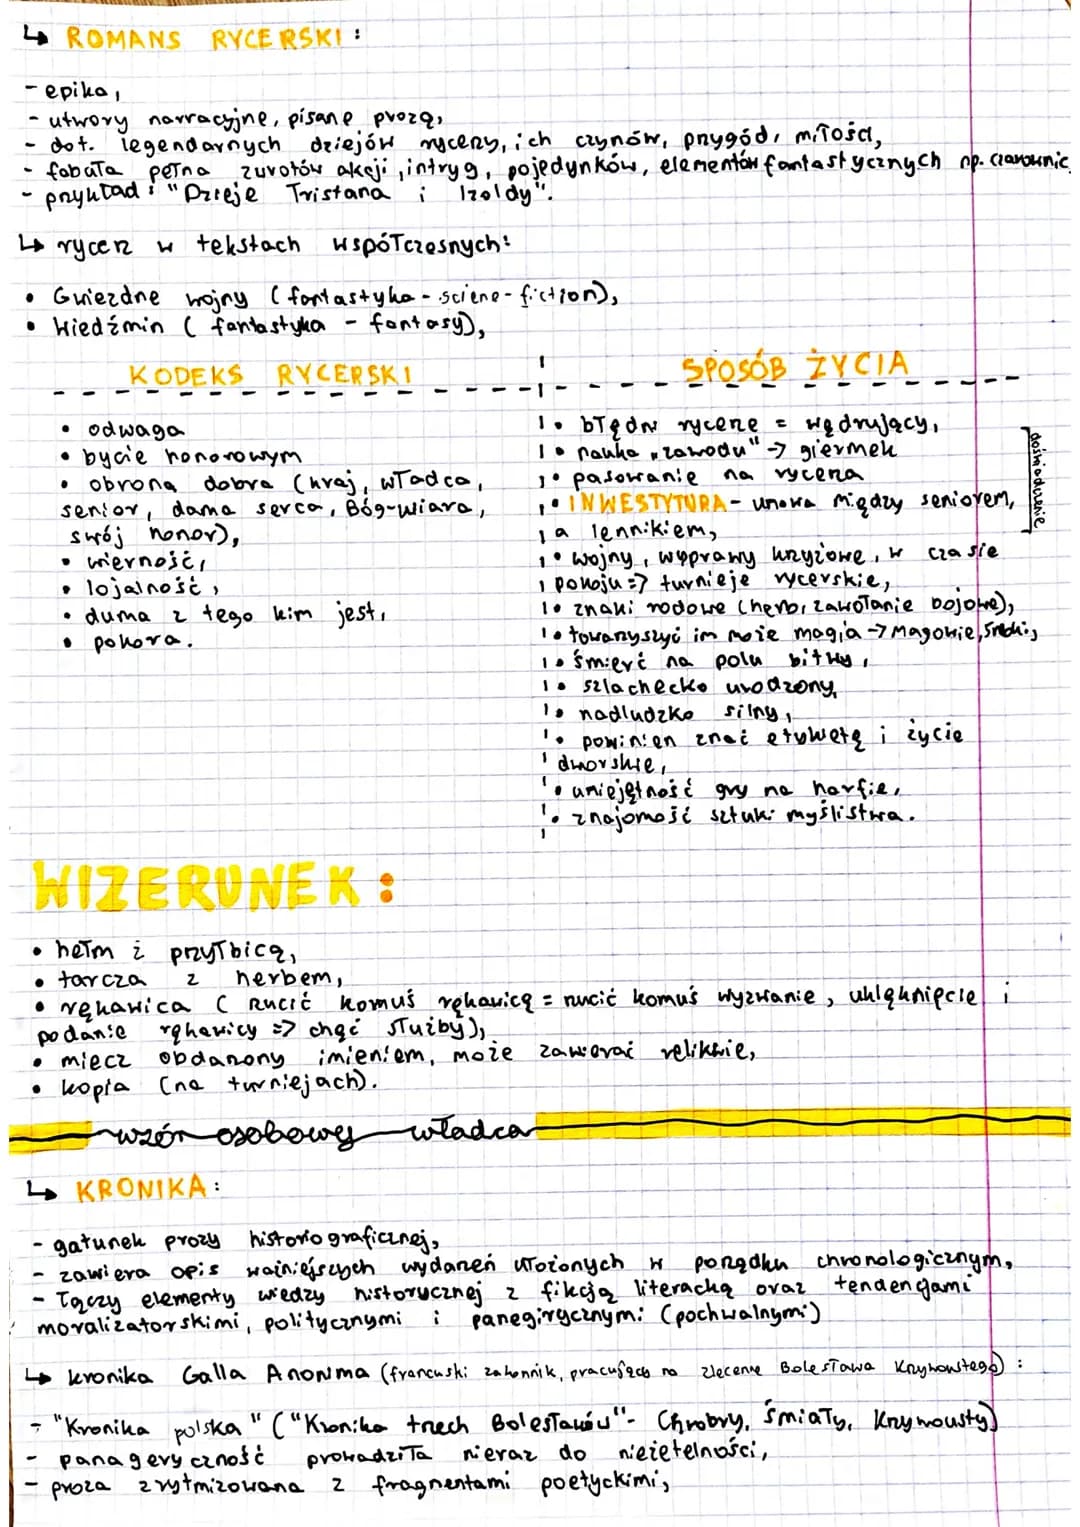 ↳ ROMANS RYCERSKI:
- epika,
- utwory narracyjne, pisane prozą,
- dot. legendarnych dziejów rycerzy, ich czynów, przygód, miłości,
- fabuła pełna zwrotów akcji, intryg, pojedynków, elementów fantastycznych np. czarownic
- przykład: "Dzieje Tristana i Izoldy".
↳ rycerz w tekstach współczesnych:
• Gwiezdne wojny (fantastyka - sciene-fiction),
• Wiedźmin (fantastyka - fantasy),
KODEKS RYCERSKI
• odwaga
• bycie honorowym
• obrona dobra (kraj, władca,
senior, dama serca, Bóg-wiara,
swój honor),
• wierność,
• lojalność,
• duma z tego kim jest,
• pokora.
SPOSÓB ŻYCIA
• błędni rycerze = wędrujący,
• nauka „zawodu" → giermek
• pasowanie na rycerza
• INWESTYTURA - umowa między seniorem,
a lennikiem,
• wojny, wyprawy krzyżowe, w czasie
pokoju => turnieje rycerskie,
• znaki rodowe (herb, zawołanie bojowe),
• towarzyszyć im może magia → Magowie,
• śmierć na polu bitwy,
• szlachecko urodzony,
• nadludzko silny,
• powinien znać etykietę i życie
dworskie,
• umiejętność gry na harfie,
• znajomość sztuki myślistwa.
doświadczenie
WIZERUNEK:
• hełm z przyłbicą,
• tarcza z herbem,
• rękawica (rzucić komuś rękawicę = rzucić komuś wyzwanie, uklęknięcie i
podanie rękawicy => chęć służby),
• miecz obdarzony imieniem, może zawierać relikwie,
• kopia (na turniejach).
wzór osobowy władca
↳ KRONIKA:
- gatunek prozy historiograficznej,
- zawiera opis ważniejszych wydarzeń ułożonych w porządku chronologicznym,
- łączy elementy wiedzy historycznej z fikcją literacką oraz tendencjami
moralizatorskimi, politycznymi i panegirycznymi (pochwalnymi)
↳ kronika Galla Anonima (francuski zakonnik, pracujący na zlecenie Bolesława Krzywoustego):
- "Kronika polska" ("Kronika trzech Bolesławów" - Chrobry, Śmiały, Krzywousty)
- panageryczność prowadziła nieraz do nierzetelności,
- proza zrytmizowana z fragmentami poetyckimi,